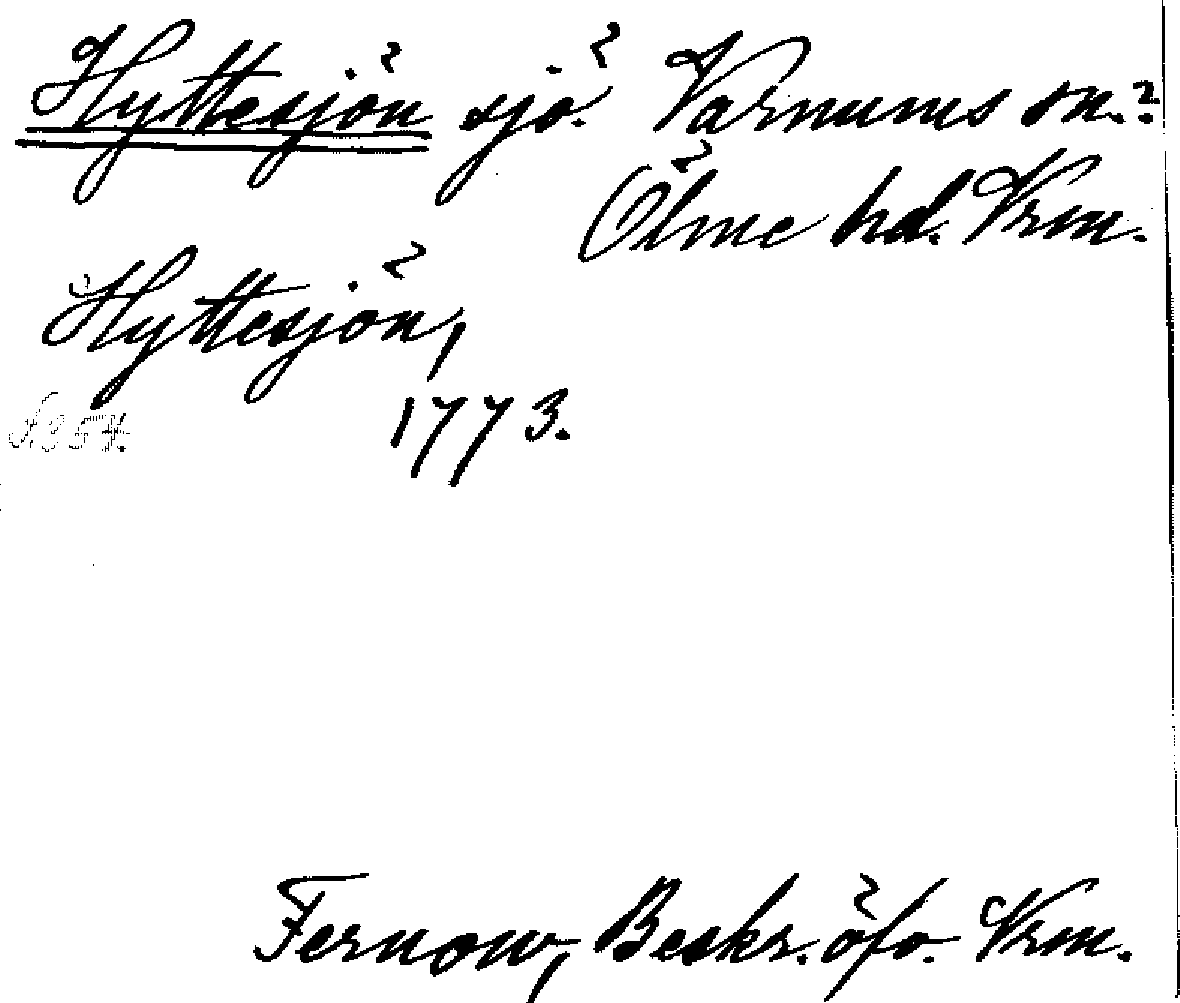 Hyttesjön sjö. Varnums sn.?
Ölme hd. Vrm.
Hyttesjön,
1773.
S. 354.
Fernow, Beskr. öfv. Vrm.